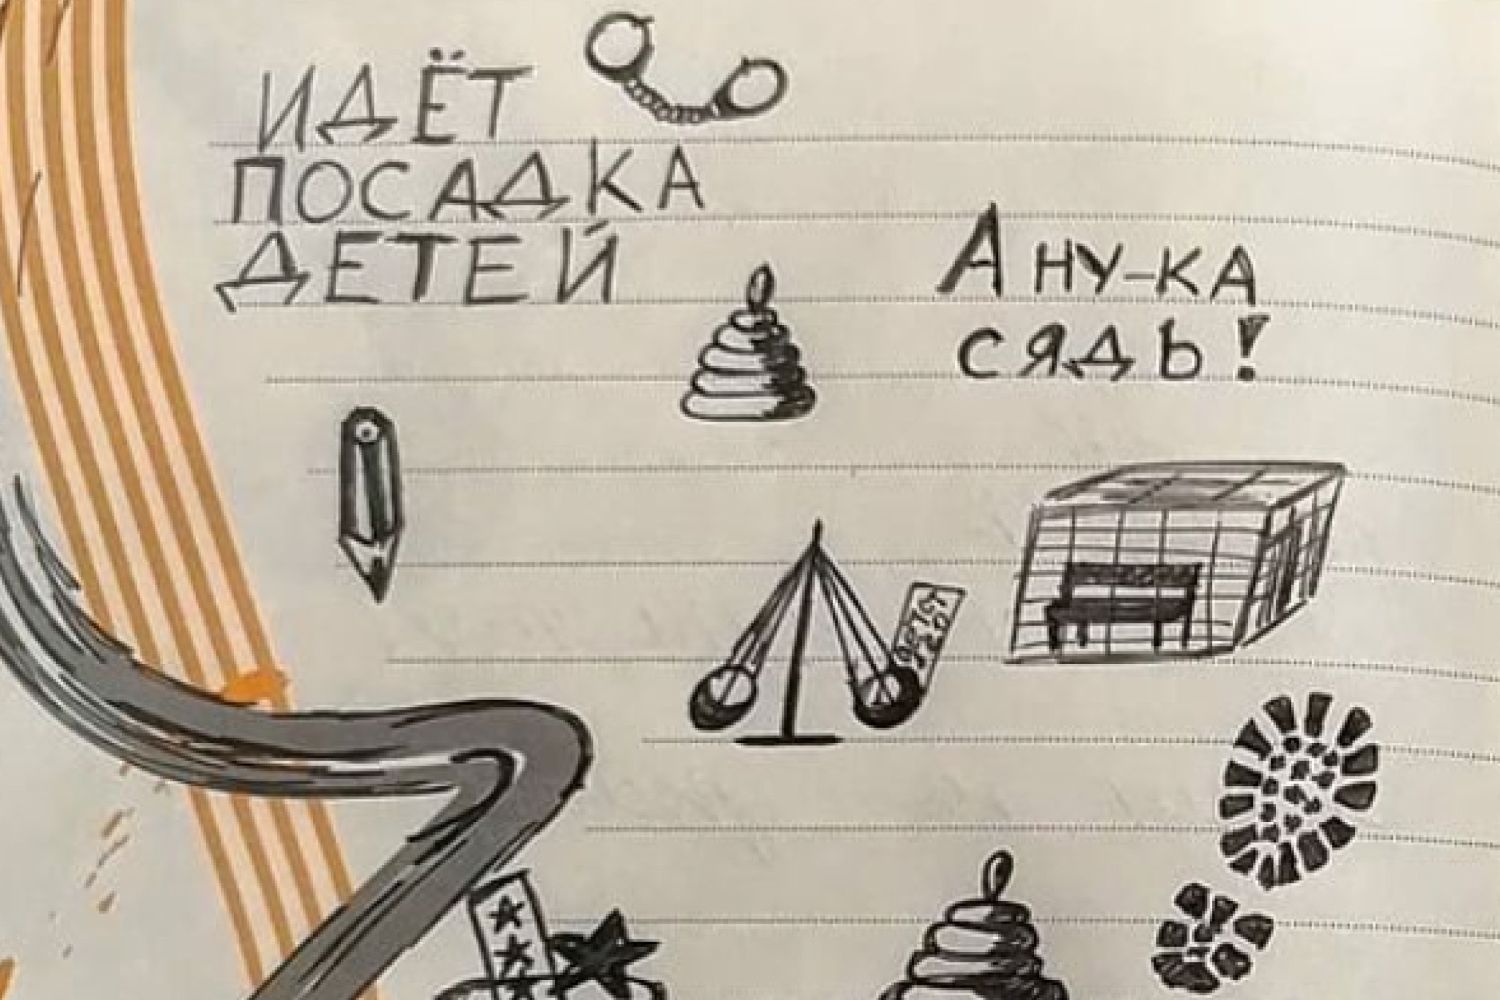 ИДЁТ
ПОСАДКА
ДЕТЕЙ
А НУ-КА
СЯДЬ!